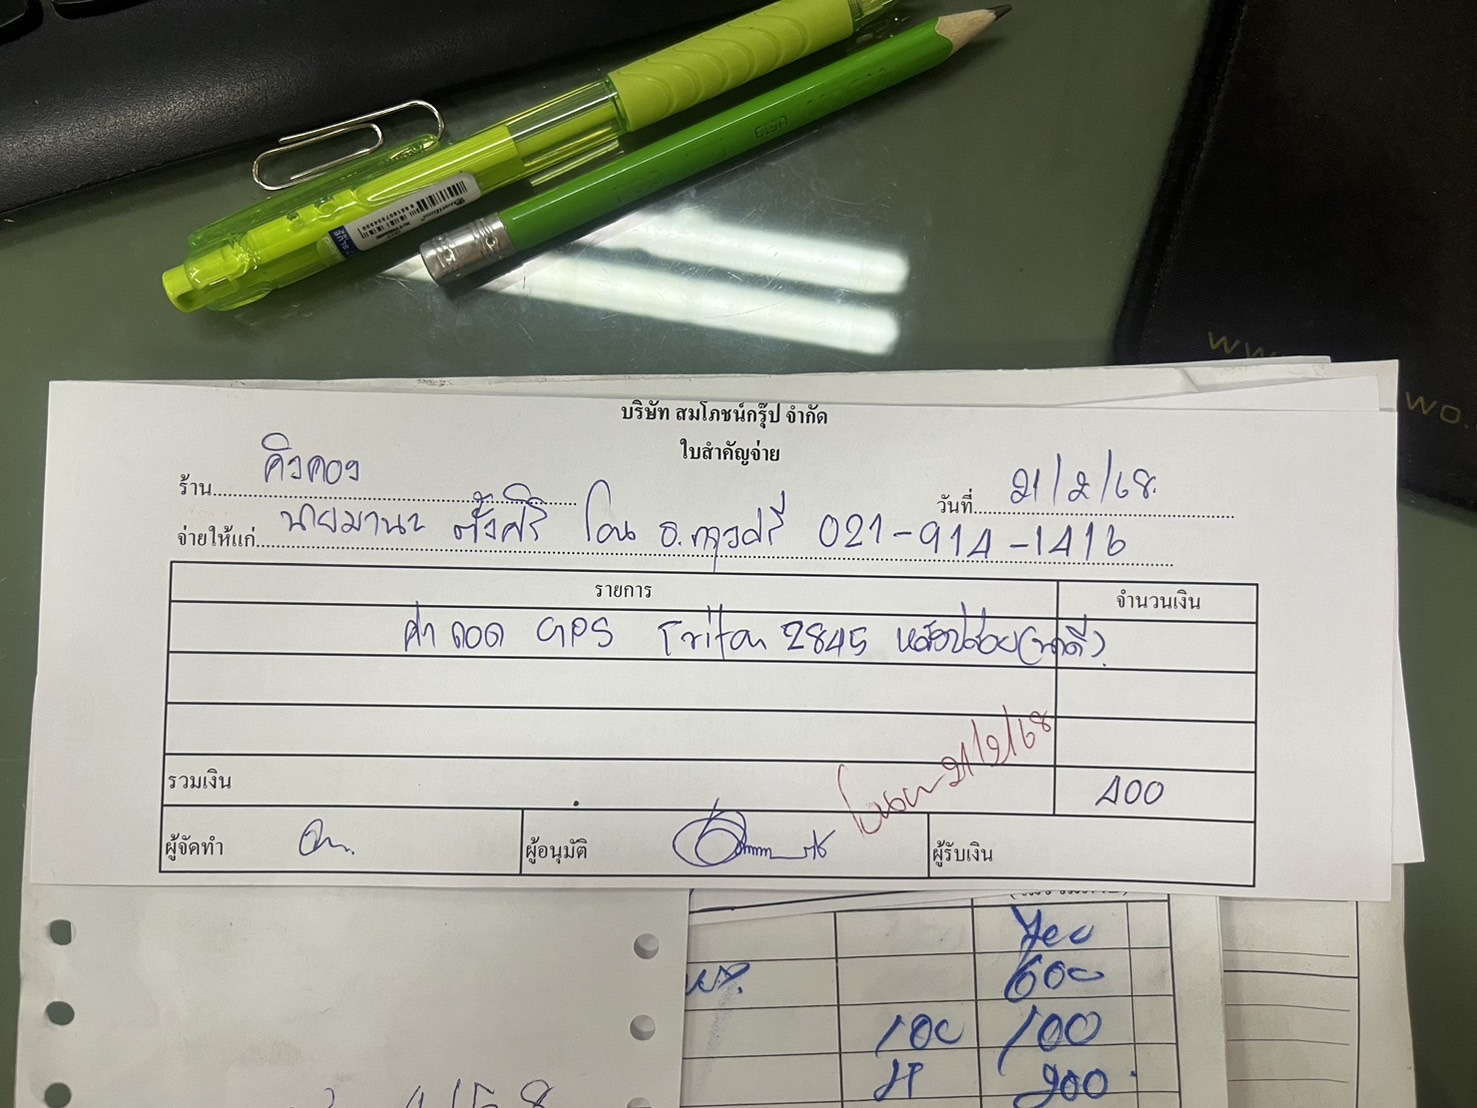 บริษัท สมโภชน์กรุ๊ป จำกัด
ใบสำคัญจ่าย
ร้าน คิงคอง วันที่ 21/2/68
จ่ายให้แก่ นายมานะ ตั้งศิริ โอน ธ.กรุงศรี 021-914-1416
รายการ จำนวนเงิน
ค่าถอด GPS Triton 2845
รวมเงิน 400
โอน 21/2/68
ผู้จัดทำ ผู้อนุมัติ ผู้รับเงิน
600
100 100
200